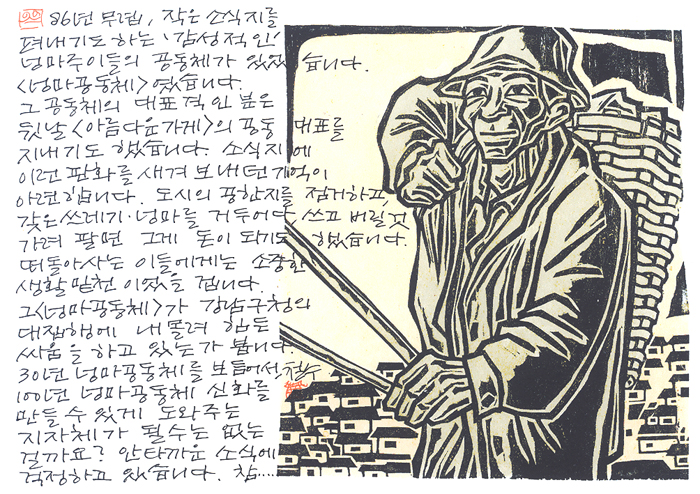 86년 무렵, 작은 소식지를
펴내기도 하는 '감성적인'
넝마주이들의 공동체가 있었습니다.
<넝마공동체>였습니다.
그 공동체의 대표격인 분은
훗날 <아름다운가게>의 공동 대표를
지내기도 했습니다. 소식지에
이런 판화를 새겨 보내던 기억이
아련합니다. 도시의 공한지를 점거하고,
갖은 쓰레기·넝마를 거두어다 쓰고 버릴 것
가려 팔면 그게 돈이 되기도 했습니다.
떠돌아 사는 이들에게는 소중한
생활 밑천이었을 겁니다.
그 <넝마공동체>가 강남구청의
대집행에 내몰려 힘든
싸움을 하고 있는가 봅니다.
30년 넝마공동체를 보듬어서
100년 넝마공동체 신화를
만들 수 있게 도와주는
지자체가 될 수는 없는
걸까요? 안타까운 소식에
걱정하고 있습니다. 참....